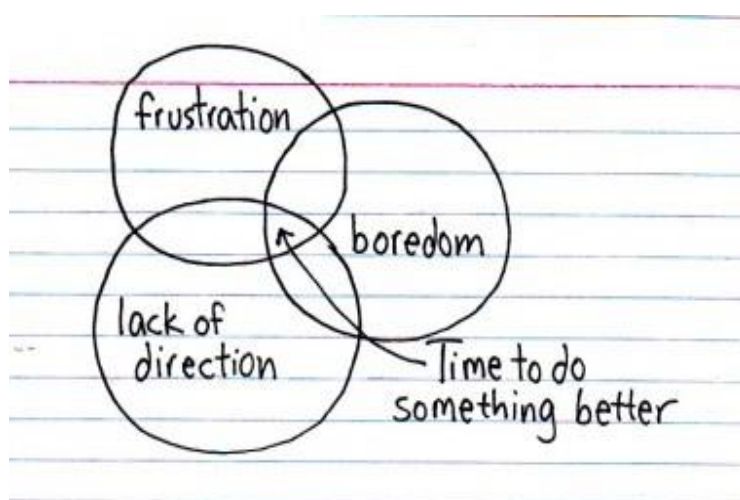 frustration
boredom
lack of
direction
Time to do
something better